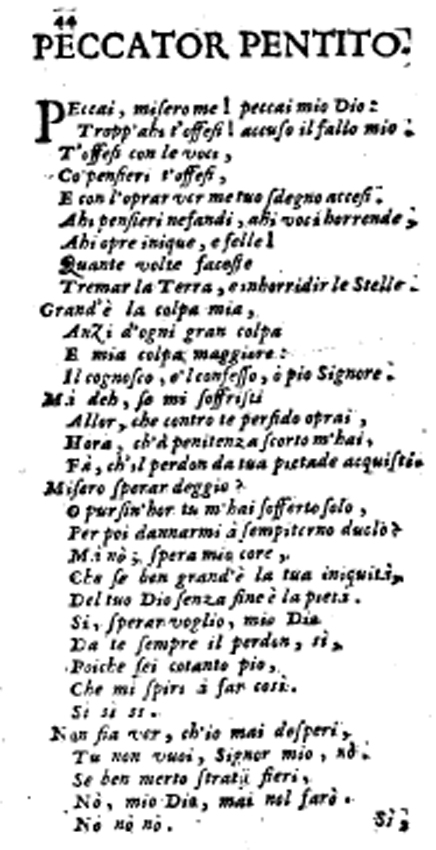 44
PECCATOR PENTITO.
PEccai, misero me! peccai mio Dio:
Tropp'ahi t'offesi! accuso il fallo mio:
T'offesi con le voci,
Co'pensieri t'offesi,
E con l'oprar ver me tuo sdegno accesi.
Ahi pensieri nefandi, ahi voci horrende,
Ahi opre inique, e felle!
Quante volte faceste
Tremar la Terra, e inhorridir le Stelle.
Grand'è la colpa mia,
Anzi d'ogni gran colpa
E mia colpa maggiore:
Il cognosco, e'l confesso, ò pio Signore.
Mà deh, se mi soffristi
Allor, che contro te perfido oprai,
Hora, ch'à penitenza scorto m'hai,
Fà, ch'il perdon da tua pietade acquisti.
Misero sperar deggio?
O pur sin'hor tu m'hai sofferto solo,
Per poi dannarmi à sempiterno duolo?
Mà nò; spera mio core,
Che se ben grand'è la tua iniquità,
Del tuo Dio senza fine è la pietà.
Sì, sperar voglio, mio Dio
Da te sempre il perdon, sì,
Poiche sei cotanto pio,
Che mi spiri à far così.
Sì sì sì.
Non fia ver, ch'io mai desperi,
Tu non vuoi, Signor mio, nò.
Se ben merto stratii fieri,
Nò, mio Dio, mai nol farò.
Nò nò nò.
Sì,